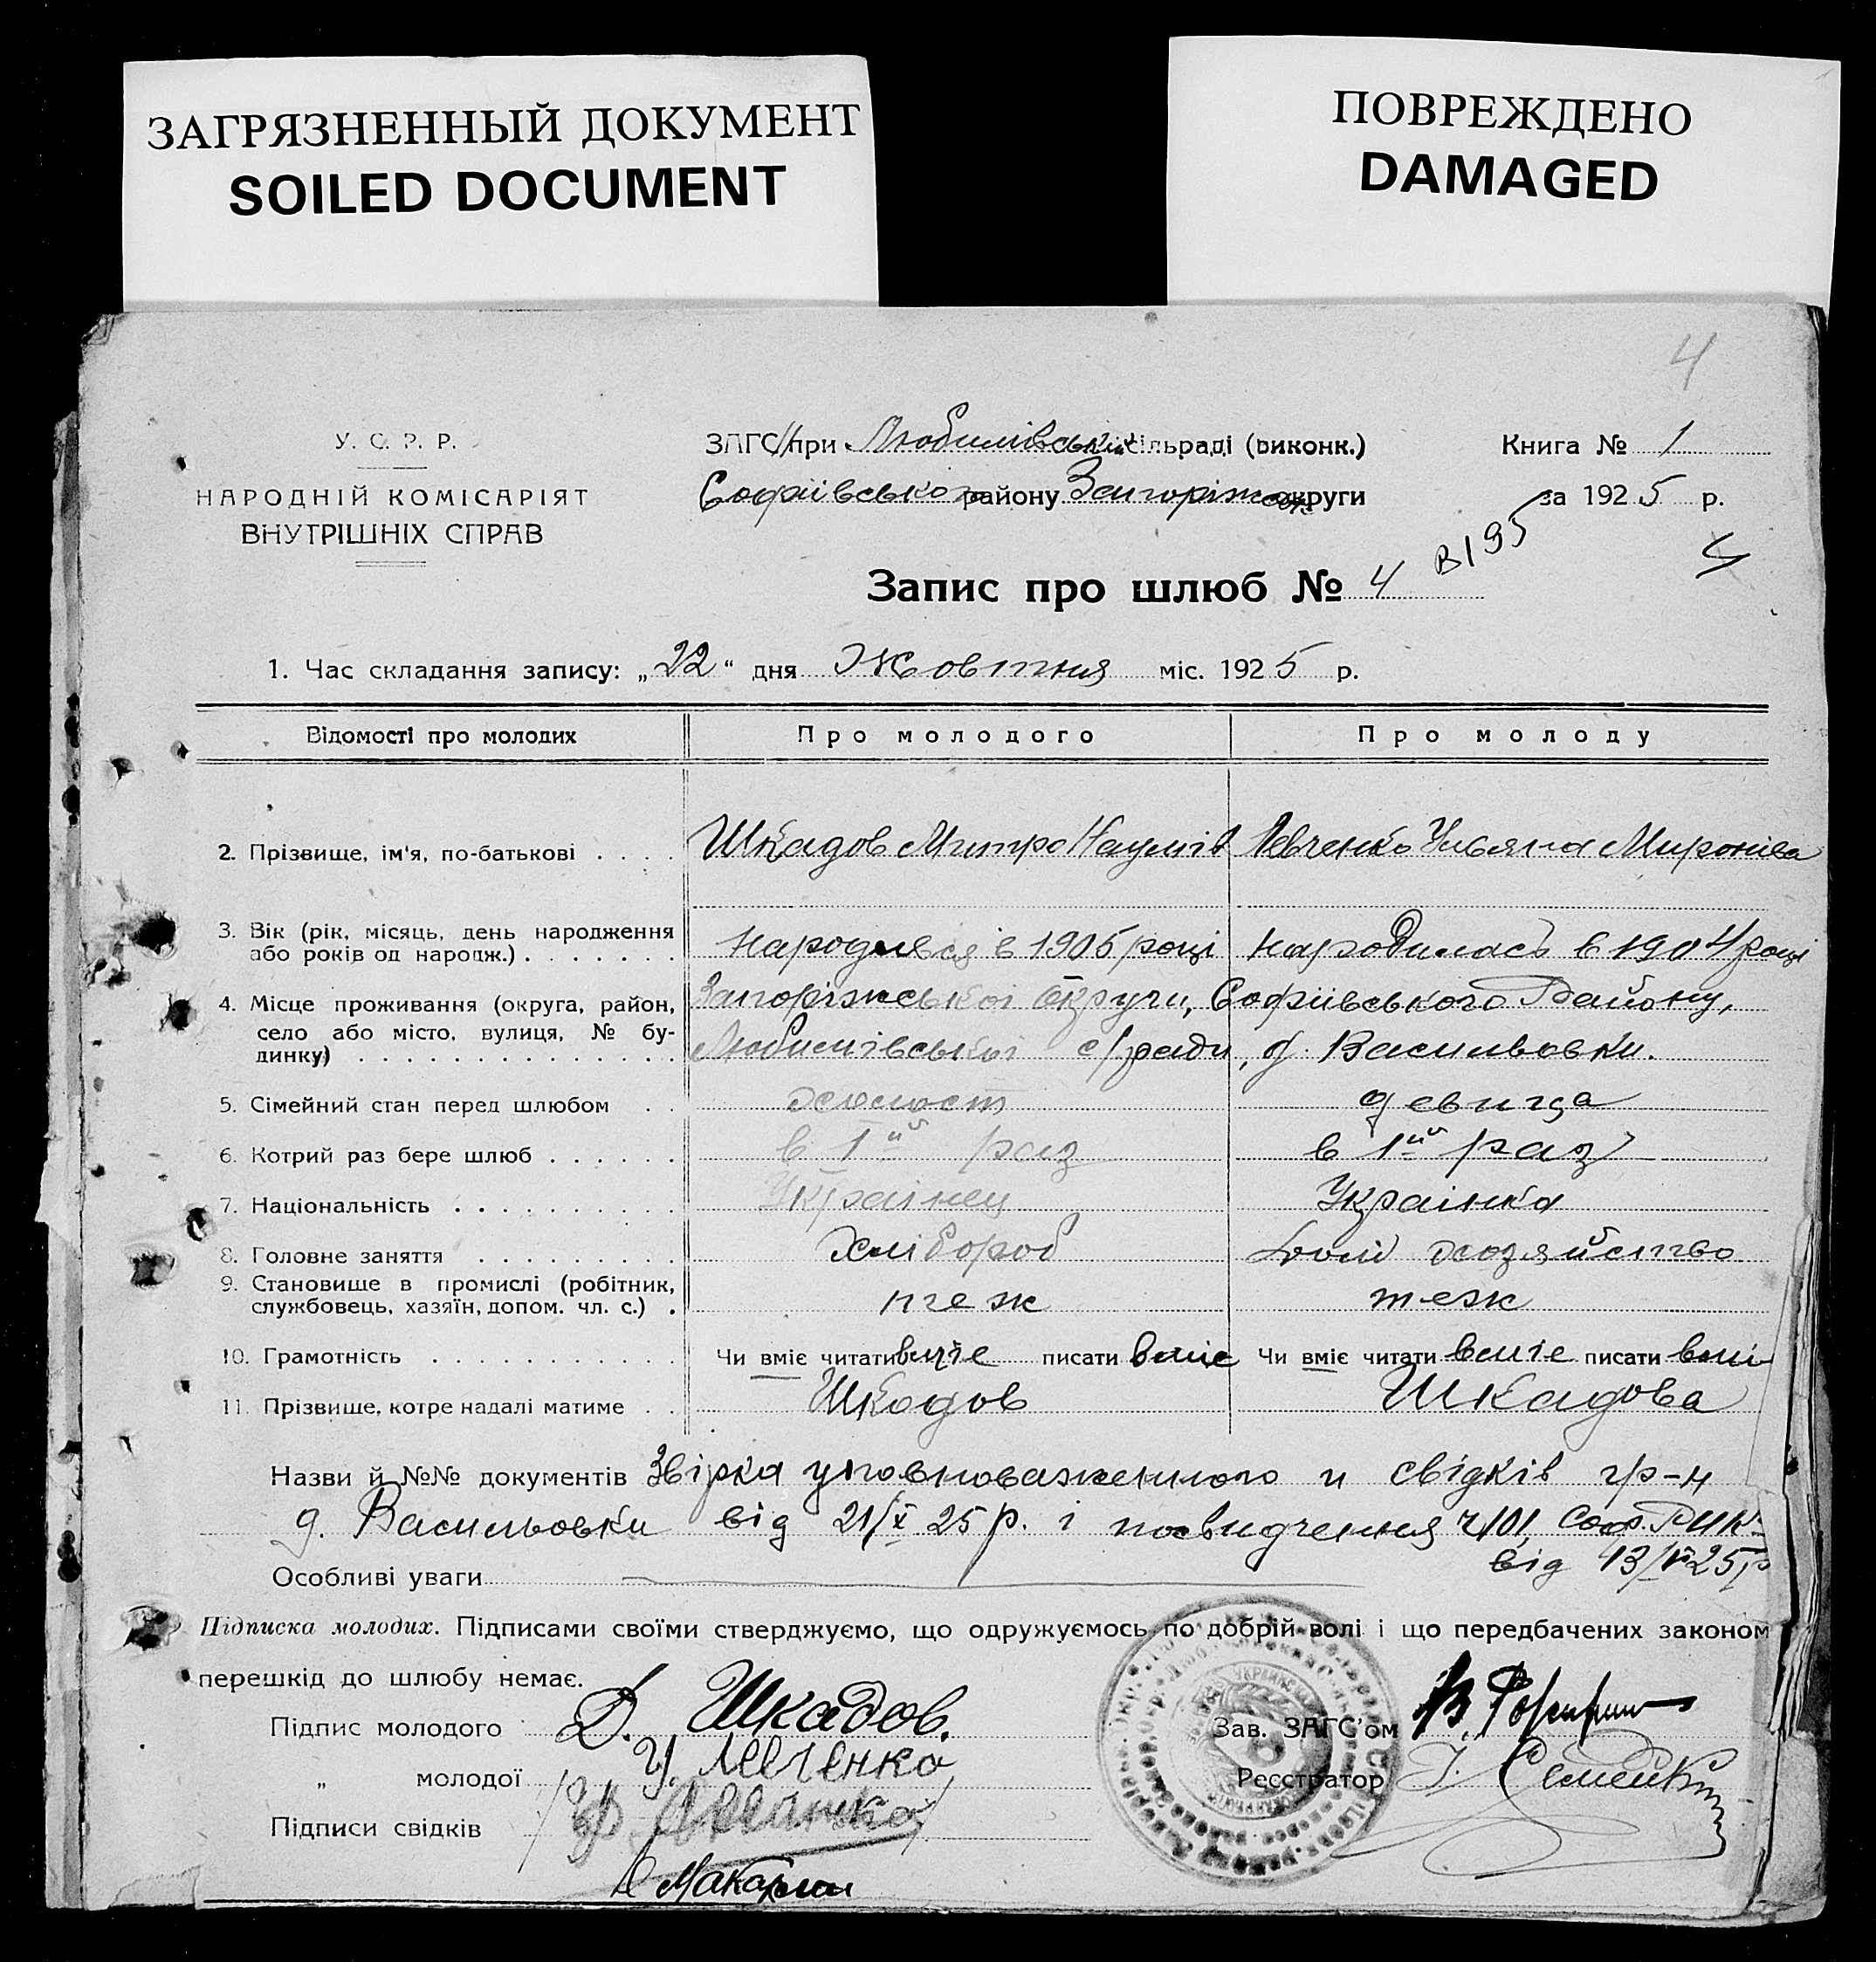 ЗАГРЯЗНЕННЫЙ ДОКУМЕНТ
SOILED DOCUMENT
ПОВРЕЖДЕНО
DAMAGED
4
У. С. Р. Р.
НАРОДНІЙ КОМІСАРІЯТ
ВНУТРІШНІХ СПРАВ
ЗАГС при Любимівській сільраді (виконк.)
Софіївського району Запоріжської округи
Книга № 1
за 1925 р.
Запис про шлюб № 4
В195
4
1. Час складання запису: „22“ дня Жовтня міс. 1925 р.
Відомості про молодих
Про молодого
Про молоду
2. Прізвище, ім'я, по-батькові . . . . Шкадов Митро Наумів Левченко Ульяна Миронівa
3. Вік (рік, місяць, день народження
або років од народж.) . . . . . . . Народився в 1905 році Народилась в 1904 році
4. Місце проживання (округа, район, Запоріжської Округи, Софіївського Району,
село або місто, вулиця, № бу-
динку) . . . . . . . . . . . . . . Любимівської с/ради, д. Васильовки.
5. Сімейний стан перед шлюбом . . холост девица
6. Котрий раз бере шлюб . . . . . . в 1ий раз в 1ий раз
7. Національність . . . . . . . . . . Українец Українка
8. Головне заняття . . . . . . . . . Хлібороб дом хозяйство
9. Становище в промислі (робітник,
службовець, хазяїн, допом. чл. с.) . теж теж
10. Грамотність . . . . . . . . . . . Чи вміє читати вміє писати вміє Чи вміє читати вміє писати вмі
11. Прізвище, котре надалі матиме . . Шкодов Шкадова
Назви й №№ документів Звірка уповноваженного и свідків гр-н
д. Васильовки від 21/X 25 р. і посвидчення ч 101 Соф. РИК
від 13/ 25 р
Особливі уваги
Підписка молодих. Підписами своїми стверджуємо, що одружуємось по добрій волі і що передбачених законом
перешкід до шлюбу немає.
Підпис молодого Д. Шкадов.
„ молодої У. Левченко
Підписи свідків
Зав. ЗАГС'ом
Реєстратор І. Семейкин